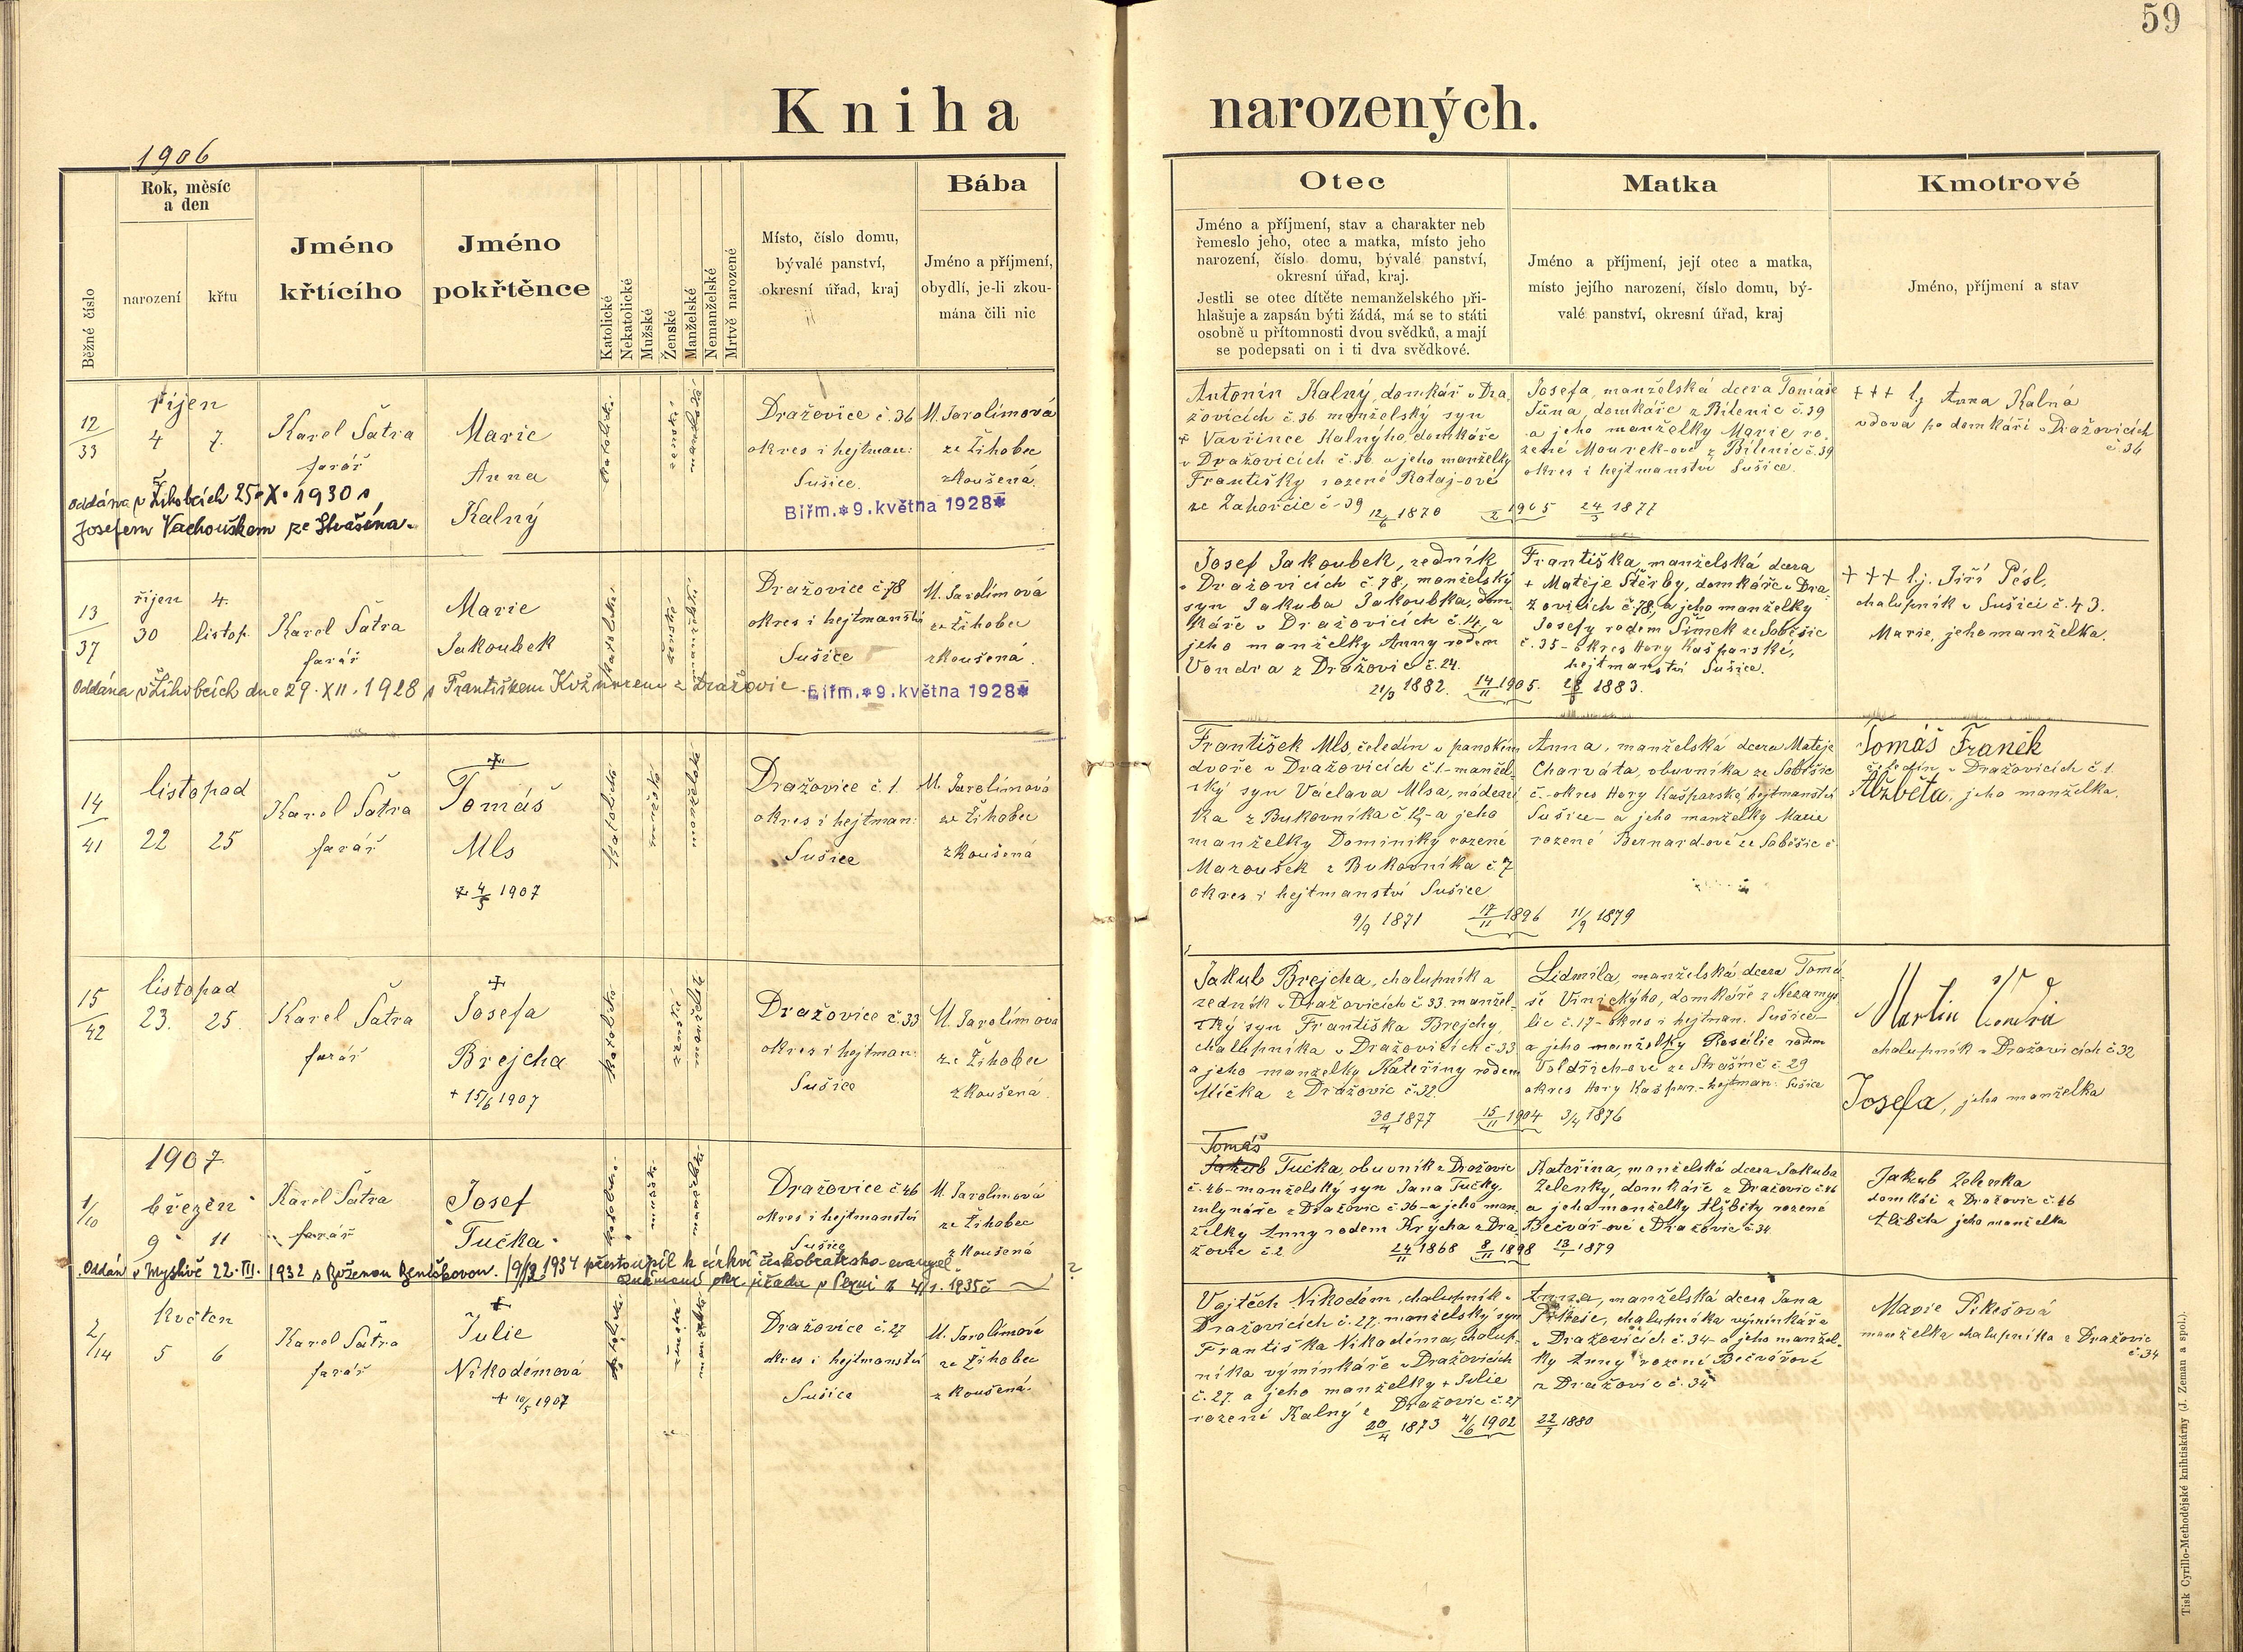 59
Kniha narozených.
1906
Běžné číslo
Rok, měsíc
a den
narození
křtu
Jméno
křtícího
Jméno
pokřtěnce
Katolické
Nekatolické
Mužské
Ženské
Manželské
Nemanželské
Mrtvě narozené
Místo, číslo domu,
bývalé panství,
okresní úřad, kraj
Bába
Jméno a příjmení,
obydlí, je-li zkou-
mána čili nic
Otec
Jméno a příjmení, stav a charakter neb
řemeslo jeho, otec a matka, místo jeho
narození, číslo domu, bývalé panství,
okresní úřad, kraj.
Jestli se otec dítěte nemanželského při-
hlašuje a zapsán býti žádá, má se to státi
osobně u přítomnosti dvou svědků, a mají
se podepsati on i ti dva svědkové.
Matka
Jméno a příjmení, její otec a matka,
místo jejího narození, číslo domu, bý-
valé panství, okresní úřad, kraj
Kmotrové
Jméno, příjmení a stav
12/33
říjen
4 7.
Karel Šatra
farář
Marie
Anna
Kalný
Oddána v Žihobcích 25. X. 1930 s
Josefem Vachouškem ze Strašína.
katolické
ženské
manželské
Dražovice č. 36
okres i hejtman:
Sušice.
Biřm. * 9. května 1928 *
M. Jarolímová
ze Žihobec
zkoušená.
Antonín Kalný, domkář v Dra-
žovicích č. 36 manželský syn
† Vavřince Kalnýho, domkáře
v Dražovicích č. 36. a jeho manželky
Františky rozené Rataj-ové
ze Zahorčic č. 39
12/6 1870
1905
24/3 1877
Josefa, manželská dcera Tomáše
Jůna, domkáře z Bílenic č. 39
a jeho manželky Marie ro-
zené Mourek-ové z Bílenic č. 39
okres i hejtmanství Sušice.
+++ Anna Kalná
vdova po domkáři v Dražovicích
č. 36
13/37
říjen 4.
30 listop.
Karel Šatra
farář
Marie
Jakoubek
Oddána v Žihobcích dne 29. XII. 1928 s Františkem Kožnarem z Dražovic.
katolické
ženské
manželské
Dražovice č. 78
okres i hejtmanství
Sušice
Biřm. * 9. května 1928 *
M. Jarolímová
ze Žihobec
zkoušená.
Josef Jakoubek, zedník
v Dražovicích č. 78, manželský
syn Jakuba Jakoubka, dom-
káře v Dražovicích č. 14, a
jeho manželky Anny rodem
Vondra z Dražovic č. 24.
21/3 1882.
14/11 1905.
28/8 1883.
Františka, manželská dcera
+ Matěje Štěrby, domkáře v Dra-
žovicích č. 78, a jeho manželky
Josefy rodem Šimek ze Soběšic
č. 35 - okres Hory Kašparské,
hejtmanství Sušice.
+++ Jiří Pésl,
chalupník v Sušici č. 43.
Marie, jeho manželka.
14/41
listopad
22 25
Karel Šatra
farář
Tomáš
Mls
+ 4/3 1907
katolické
mužské
manželské
Dražovice č. 1.
okres i hejtman:
Sušice
M. Jarolímová
ze Žihobec
zkoušená
František Mls, čeledín v panském
dvoře v Dražovicích č. 1. - manžel-
ský syn Václava Mlsa, nádení-
ka z Bukovníka č. 12, a jeho
manželky Dominiky rozené
Maroušek z Bukovníka č. 7
okres i hejtmanství Sušice
9/9 1871
17/11 1896
11/9 1879
Anna, manželská dcera Matěje
Charváta, obuvníka ze Soběšic
č. - okres Hory Kašparské, hejtmanství
Sušice - a jeho manželky Marie
rozené Bernard-ové ze Soběšic č.
Tomáš Franěk
čeledín v Dražovicích č. 1.
Alžběta, jeho manželka.
15/42
listopad
23. 25.
Karel Šatra
farář
Josefa
Brejcha
+ 15/6 1907
katolické
ženské
manželské
Dražovice č. 33
okres i hejtman:
Sušice
M. Jarolímová
ze Žihobec
zkoušená.
Jakub Brejcha, chalupník a
zedník v Dražovicích č. 33. manžel-
ský syn Františka Brejchy,
chalupníka v Dražovicích č. 33
a jeho manželky Kateřiny rodem
Mička z Dražovic č. 32.
30/4 1877
15/11 1904
3/4 1876
Lidmila, manželská dcera Tomá-
še Vinickýho, domkáře z Nezamys-
lic č. 17 - okres i hejtman. Sušice -
a jeho manželky Rosálie rodem
Voldřich-ové ze Strašíně č. 29
okres Hory Kašpar. - hejtman: Sušice
Martin Vondra
chalupník v Dražovicích č. 32
Josefa, jeho manželka
1907
1/10
březen
9 11
Karel Šatra
farář
Josef
Tučka.
Oddán v Myslivě 22. III. 1932 s Boženou Beníškovou. 1934 přestoupil k církvi českobratrsko-evangel.
katolické
mužské
manželské
Dražovice č. 46
okres i hejtmanství
Sušice
M. Jarolímová
ze Žihobec
zkoušená
Tomáš
Jakub Tučka, obuvník z Dražovic
č. 46 - manželský syn Jana Tučky,
mlynáře z Dražovic č. 36 - a jeho man-
želky Anny rodem Krýcha z Dra-
žovic č. 2
24/11 1868
8/11 1898
13/1 1879
Kateřina, manželská dcera Jakuba
Zelenky, domkáře z Dražovic č. 46
a jeho manželky Alžběty rozené
Bečvář-ové z Dražovic č. 34
Jakub Zelenka
domkář z Dražovic č. 46
Alžběta jeho manželka
2/14
květen
5 6
Karel Šatra
farář
Julie
Nikodémová
+ 10/5 1907
katolické
ženské
manželské
Dražovice č. 27
okres i hejtmanství
Sušice
M. Jarolímová
ze Žihobec
zkoušená.
Vojtěch Nikodém, chalupník v
Dražovicích č. 27, manželský syn
Františka Nikodéma, chalup-
níka výminkáře v Dražovicích
č. 27. a jeho manželky + Julie
rozené Kalný z Dražovic č. 27
20/4 1873
4/6 1902
22/7 1880
Anna, manželská dcera Jana
Pikeše, chalupníka výminkáře
v Dražovicích č. 34 - a jeho manžel-
ky Anny rozené Bečvářové
z Dražovic č. 34
Marie Pikešová
manželka chalupníka z Dražovic
č. 34
Tisk Cyrillo-Methodějské knihtiskárny (J. Zeman a spol.).